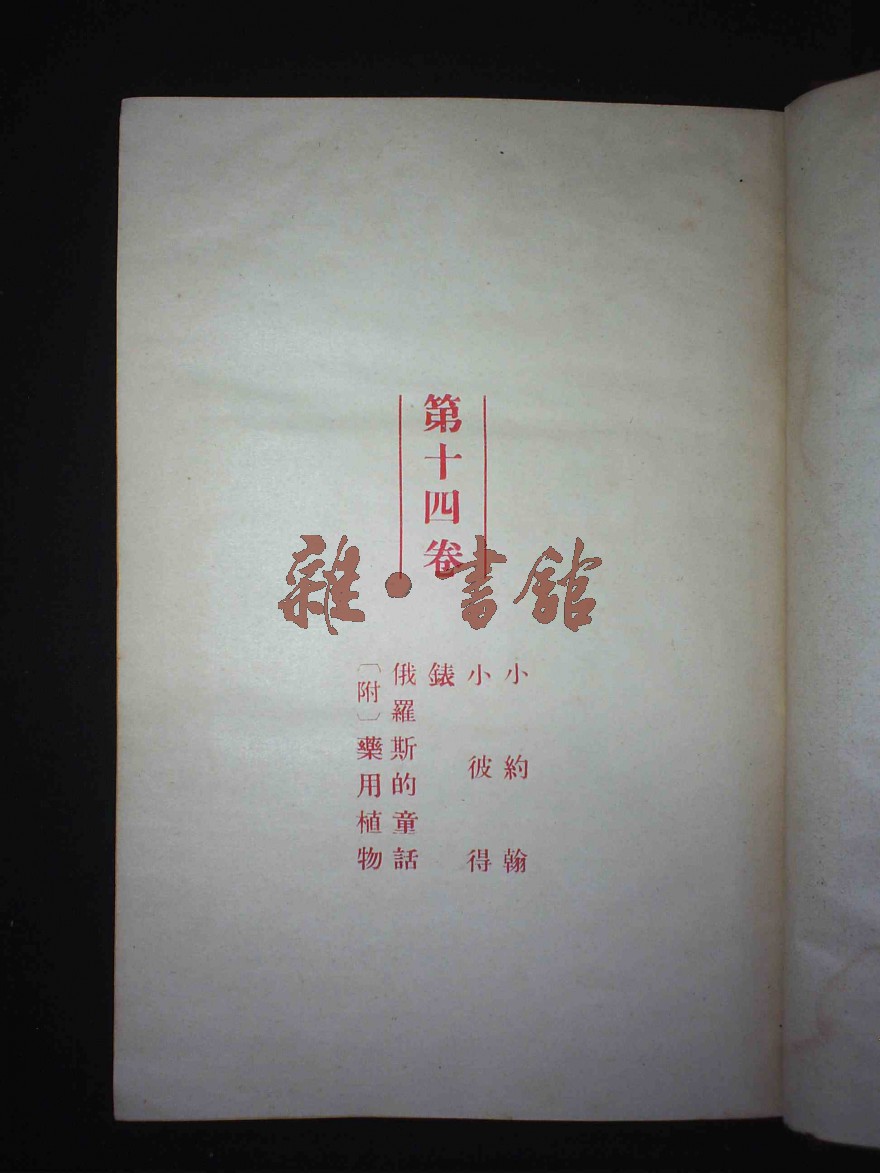 第十四卷
雜·書館
小約翰
小彼得
錶
俄羅斯的童話
〔附〕藥用植物